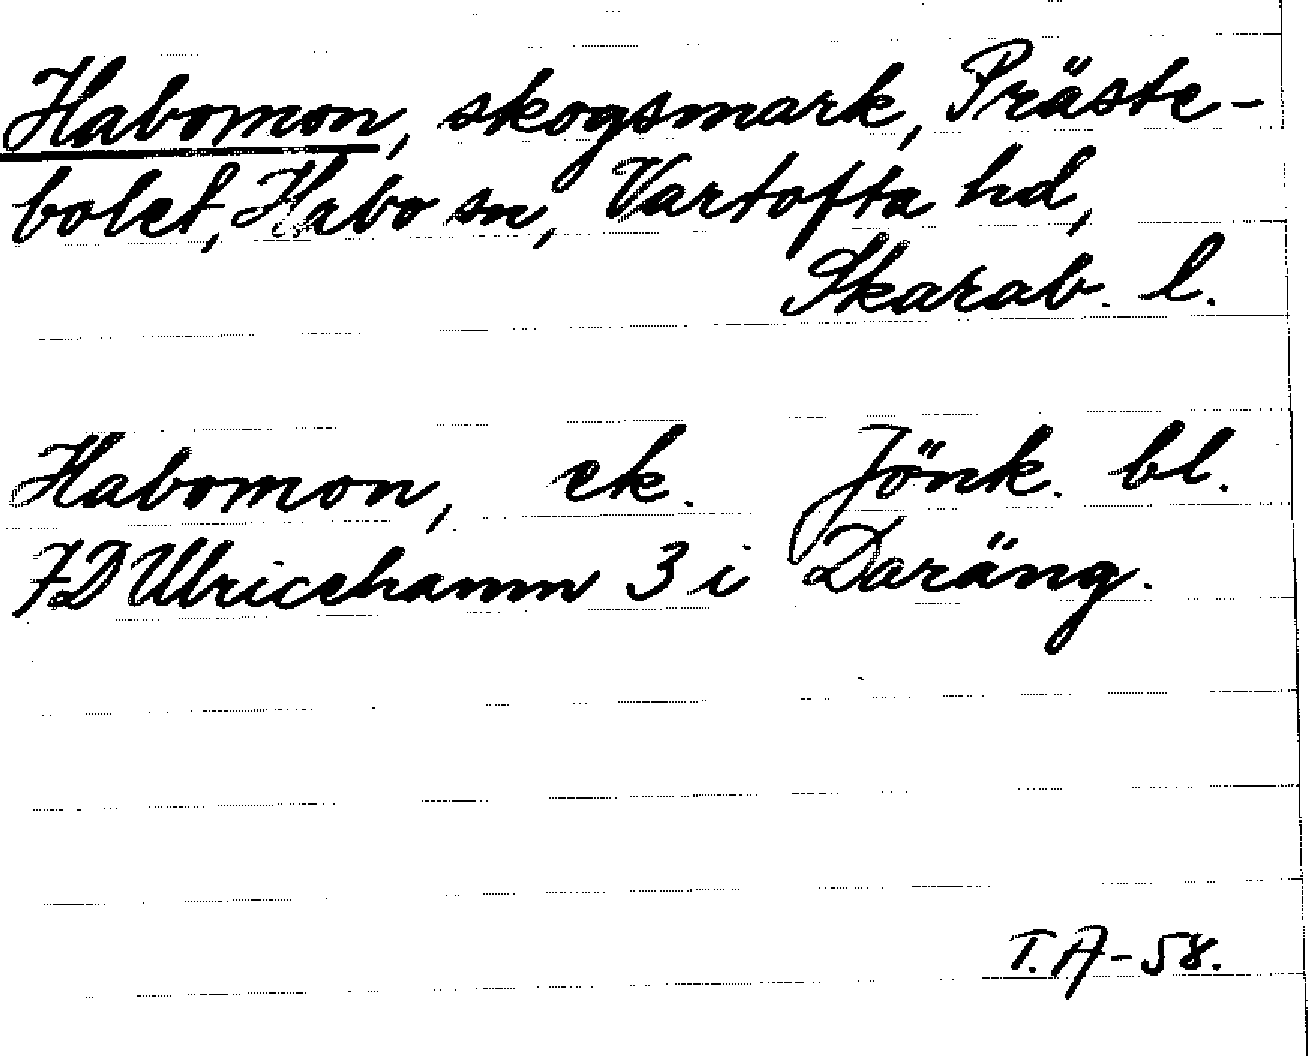 Habomon, skogsmark, Präste-
bolet, Habo sn, Vartofta hd,
Skarab. l.
Habomon, ek. Jönk. bl.
7D Ulricehamn 3 i Daräng.
T. A-58.